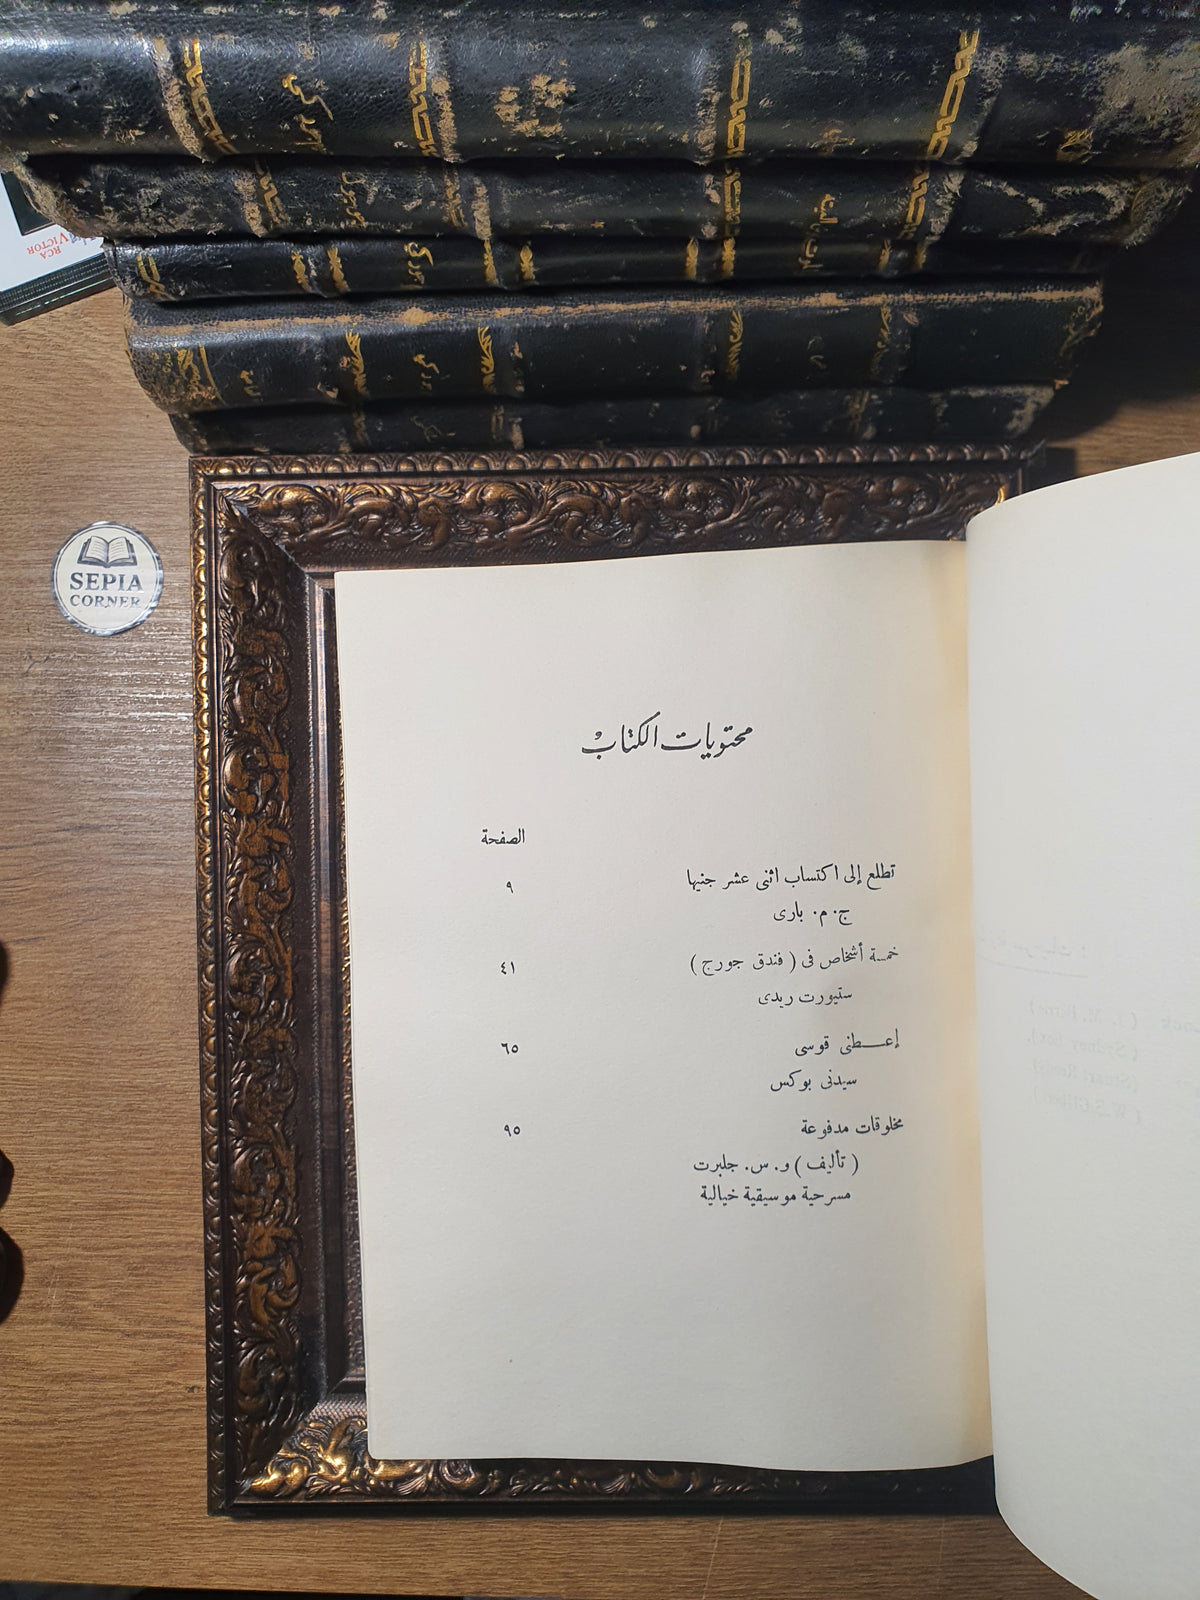 RCA
VICTOR
SEPIA
CORNER
محتويات الكتاب
الصفحة
تطلع إلى اكتساب اثنى عشر جنيها ٩
ج. م. بارى
خمسة أشخاص فى ( فندق جورج ) ٤١
ستيورت ريدى
إعـــطنى قوسى ٦٥
سيدنى بوكس
مخلوقات مدفوعة ٩٥
( تأليف ) و. س. جلبرت
مسرحية موسيقية خيالية